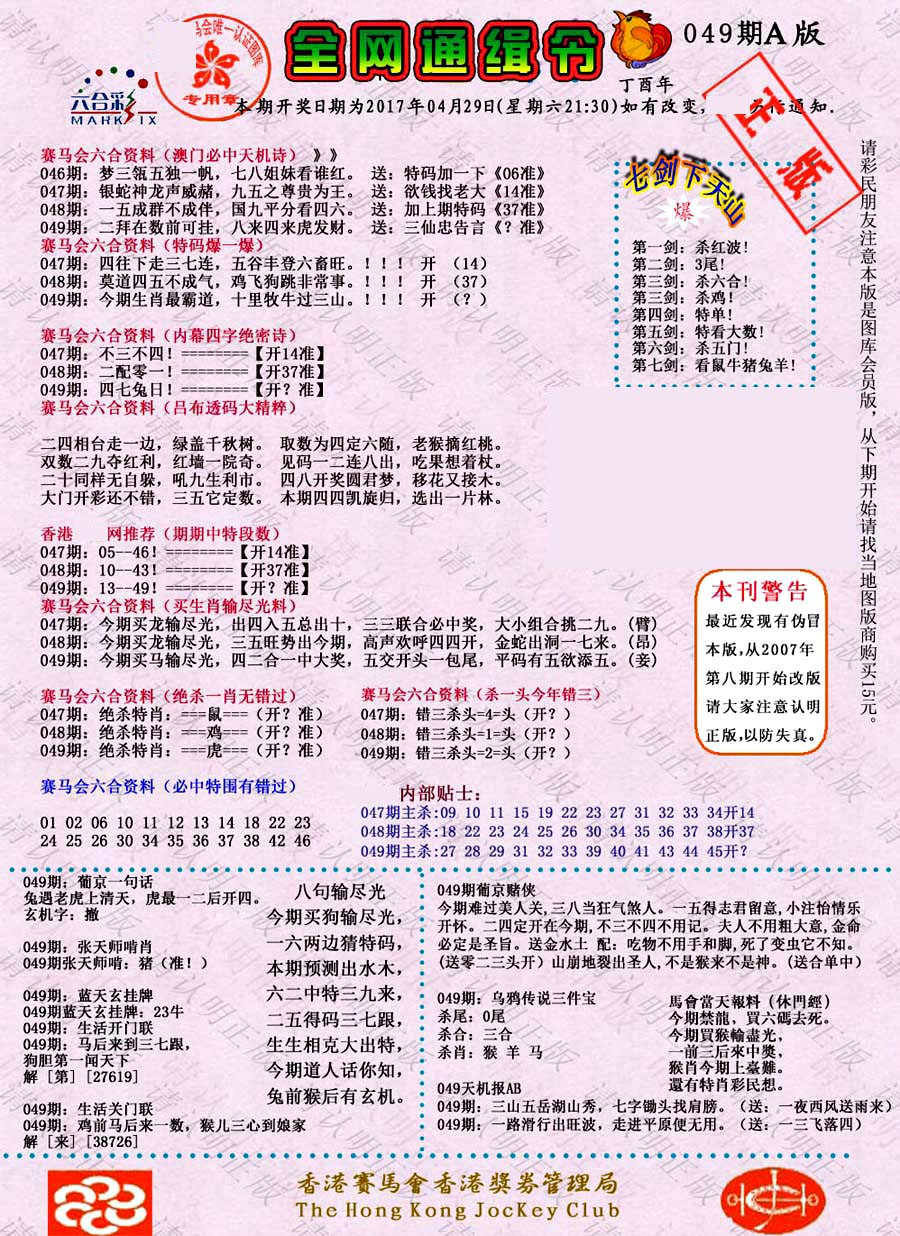 马会唯一认证图库
专用章
六合彩
MARK SIX
全网通缉令
丁酉年
049期A版
本期开奖日期为2017年04月29日(星期六21:30)如有改变，
通知.
正版
赛马会六合资料（澳门必中天机诗）》》
046期：梦三瓴五独一帆，七八姐妹看谁红。 送：特码加一下《06准》
047期：银蛇神龙声威赭，九五之尊贵为王。 送：欲钱找老大《14准》
048期：一五成群不成伴，国九平分看四六。 送：加上期特码《37准》
049期：二拜在数前可挂，八来四来虎发财。 送：三仙忠告言《？准》
赛马会六合资料（特码爆一爆）
047期：四往下走三七连，五谷丰登六畜旺。！！！ 开 （14）
048期：莫道四五不成气，鸡飞狗跳非常事。！！！ 开 （37）
049期：今期生肖最霸道，十里牧牛过三山。！！！ 开 （？）
赛马会六合资料（内幕四字绝密诗）
047期：不三不四！========【开14准】
048期：二配零一！========【开37准】
049期：四七兔日！========【开？准】
赛马会六合资料（吕布透码大精粹）
二四相台走一边，绿盖千秋树。 取数为四定六随，老猴摘红桃。
双数二九夺红利，红墙一院奇。 见码一二连八出，吃果想着杖。
二十同样无自躲，吼九生利市。 四八开奖圆君梦，移花又接木。
大门开彩还不错，三五它定数。 本期四四凯旋归，选出一片林。
七剑下天山
爆
第一剑：杀红波！
第二剑：3尾！
第三剑：杀六合！
第三剑：杀鸡！
第四剑：特单！
第五剑：特看大数！
第六剑：杀五门！
第七剑：看鼠牛猪兔羊！
请彩民朋友注意本版是图库会员版，从下期开始请找当地图版商购买15元。
香港 网推荐（期期中特段数）
047期：05--46！========【开14准】
048期：10--43！========【开37准】
049期：13--49！========【开？准】
赛马会六合资料（买生肖输尽光料）
047期：今期买龙输尽光，出四入五总出十，三三联合必中奖，大小组合挑二九。(臂)
048期：今期买龙输尽光，三五旺势出今期，高声欢呼四四开，金蛇出洞一七来。(昂)
049期：今期买马输尽光，四二合一中大奖，五交开头一包尾，平码有五欲添五。(妾)
本刊警告
最近发现有伪冒
本版,从2007年
第八期开始改版
请大家注意认明
正版,以防失真。
赛马会六合资料（绝杀一肖无错过）
047期：绝杀特肖：===鼠===（开？准）
048期：绝杀特肖：===鸡===（开？准）
049期：绝杀特肖：===虎===（开？准）
赛马会六合资料（杀一头今年错三）
047期：错三杀头=4=头（开？）
048期：错三杀头=1=头（开？）
049期：错三杀头=2=头（开？）
赛马会六合资料（必中特围有错过）
01 02 06 10 11 12 13 14 18 22 23
24 25 26 30 34 35 36 37 38 42 46
内部贴士：
047期主杀:09 10 11 15 19 22 23 27 31 32 33 34开14
048期主杀:18 22 23 24 25 26 30 34 35 36 37 38开37
049期主杀:27 28 29 31 32 33 39 40 41 43 44 45开？
049期：葡京一句话
兔遇老虎上清天，虎最一二后开四。
玄机字：撤
049期：张天师啃肖
049期张天师啃：猪（准！）
049期：蓝天玄挂牌
049期蓝天玄挂牌：23牛
049期：生活开门联
049期：马后来到三七跟，
狗胆第一闻天下
解［第］[27619]
049期：生活关门联
049期：鸡前马后来一数，猴儿三心到娘家
解［来］[38726]
八句输尽光
今期买狗输尽光，
一六两边猜特码，
本期预测出水木，
六二中特三九来，
二五得码三七跟，
生生相克大出特，
今期道人话你知，
兔前猴后有玄机。
049期葡京赌侠
今期难过美人关,三八当狂气煞人。一五得志君留意,小注怡情乐
开怀。二四定开在今期,不三不四不用记。夫人不用粗大意,金命
必定是圣旨。送金水土 配：吃物不用手和脚,死了变虫它不知。
(送零二三头开) 山崩地裂出圣人,不是猴来不是神。(送合单中)
049期：乌鸦传说三件宝
杀尾：0尾
杀合：三合
杀肖：猴 羊 马
馬會當天報料（休門經）
今期禁龍、買六碼去死。
今期買猴輸盡光，
一前三后來中獎，
猴肖今期上臺難。
還有特肖彩民想。
049天机报AB
049期：三山五岳湖山秀，七字锄头找肩膀。（送：一夜西风送雨来）
049期：一路滑行出旺波，走进平原便无用。（送：一三飞落四）
香港賽馬會香港獎券管理局
The Hong Kong JocKey Club